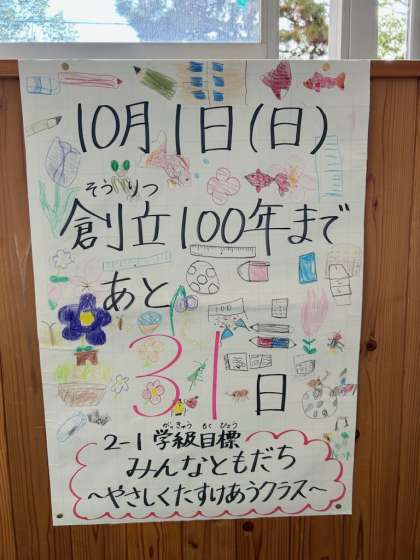 10月1日(日)
そうりつ
創立100年まで
あと
31日
がっきゅう もくひょう
2-1 学級目標
みんなともだち
～やさしくたすけあうクラス～